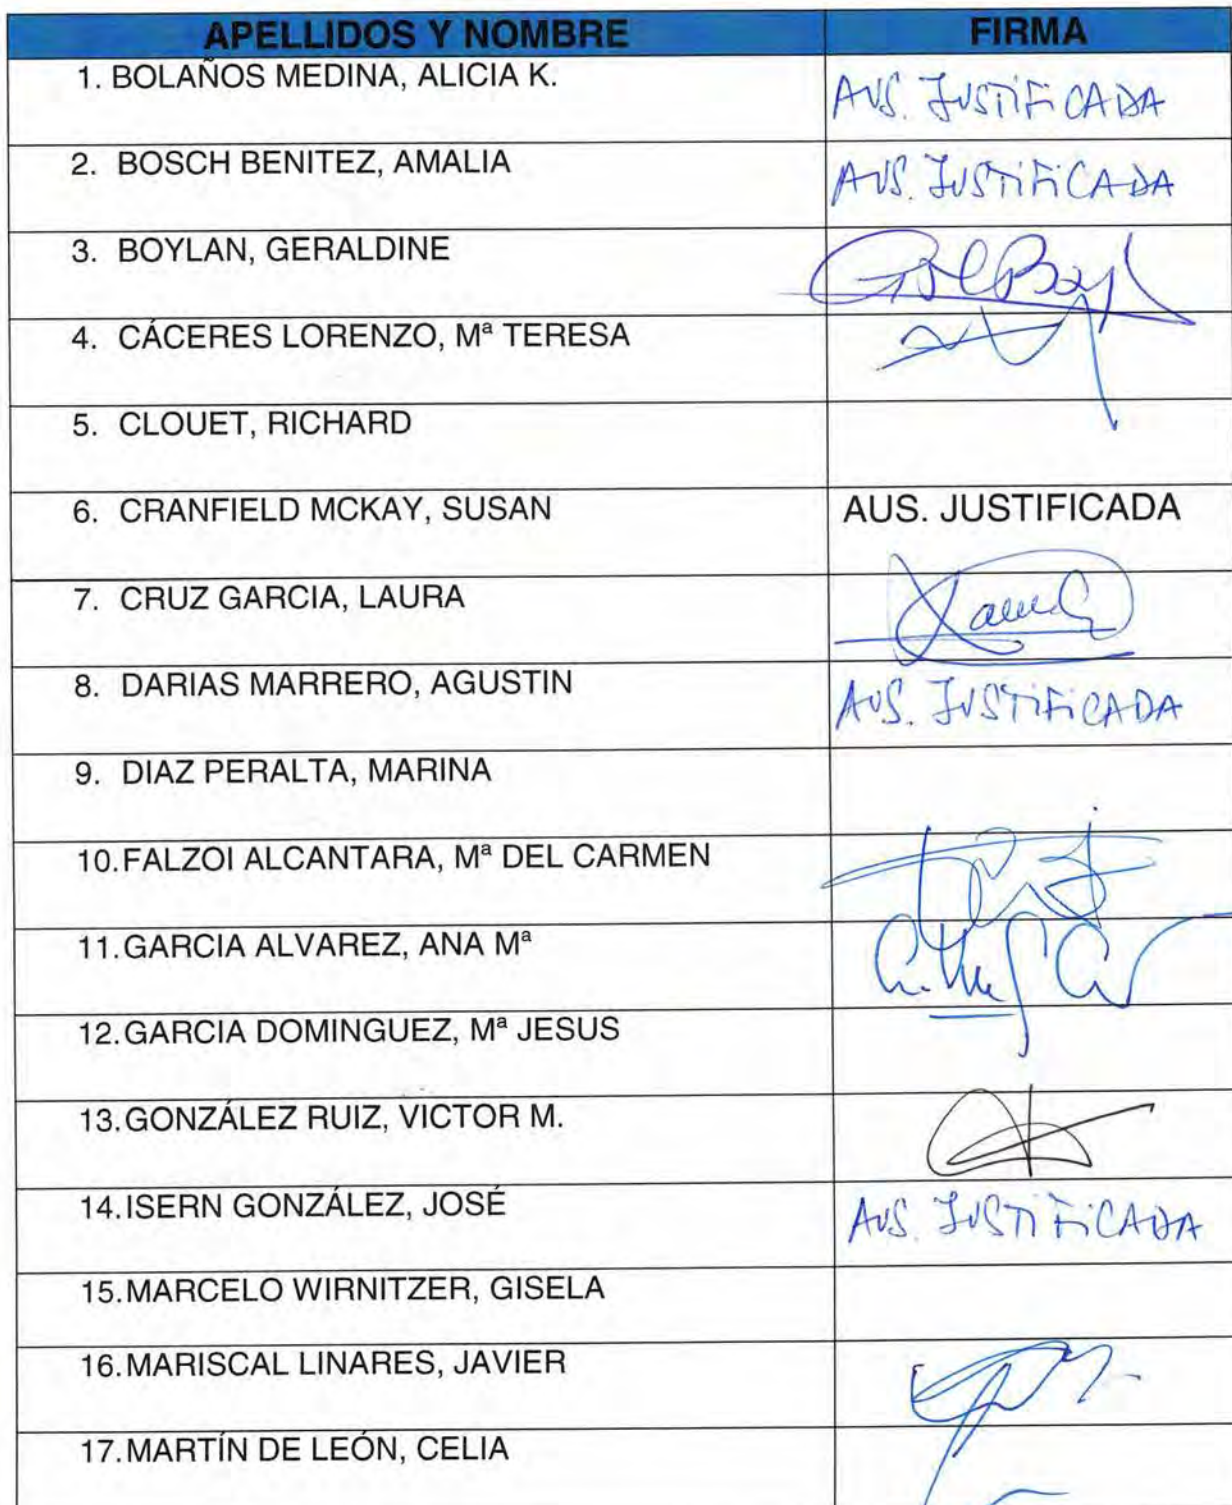 APELLIDOS Y NOMBRE FIRMA
1. BOLAÑOS MEDINA, ALICIA K. AUS. JUSTIFICADA
2. BOSCH BENITEZ, AMALIA AUS. JUSTIFICADA
3. BOYLAN, GERALDINE
4. CÁCERES LORENZO, Mª TERESA
5. CLOUET, RICHARD
6. CRANFIELD MCKAY, SUSAN AUS. JUSTIFICADA
7. CRUZ GARCIA, LAURA
8. DARIAS MARRERO, AGUSTIN AUS. JUSTIFICADA
9. DIAZ PERALTA, MARINA
10. FALZOI ALCANTARA, Mª DEL CARMEN
11. GARCIA ALVAREZ, ANA Mª
12. GARCIA DOMINGUEZ, Mª JESUS
13. GONZÁLEZ RUIZ, VICTOR M.
14. ISERN GONZÁLEZ, JOSÉ AUS. JUSTIFICADA
15. MARCELO WIRNITZER, GISELA
16. MARISCAL LINARES, JAVIER
17. MARTÍN DE LEÓN, CELIA